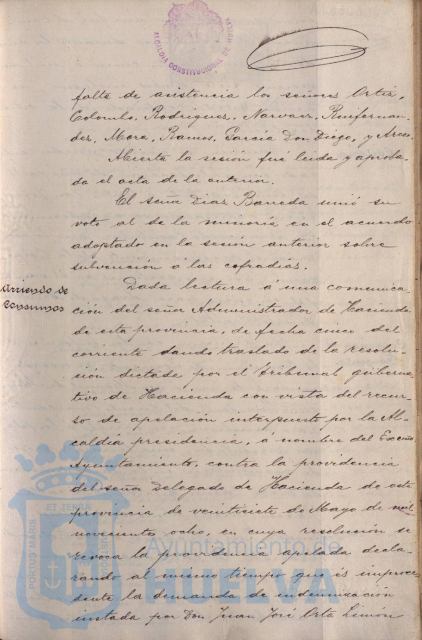 ALCALDIA CONSTITUCIONAL DE HUELVA
falta de asistencia los señores Ortiz,
Colombo, Rodriguez, Narvaez, Renfernan-
dez, Mora, Ramos, García Don Diego, y Arcos.
Abierta la sesión fué leida y aproba-
da el acta de la anterior.
El señor Diaz Barreda unió su
voto al de la minoría en el acuerdo
adoptado en la sesión anterior sobre
subvención á las cofradías.
Arriendo de
Consumos
Dada lectura á una comunica-
ción del señor Administrador de Hacienda
de esta provincia, de fecha cinco del
corriente dando traslado de la resolu-
sión dictada por el tribunal guberna-
tivo de Hacienda con vista del recur-
so de apelación interpuesto por la Al-
caldía presidencia, á nombre del Excmo
Ayuntamiento, contra la providencia
del señor Delegado de Hacienda de esta
provincia de veintisiete de Mayo de mil
novecientos ocho, en cuya resolución se
revoca la providencia apelada decla-
rando al mismo tiempo que és improce-
dente la demanda de indemnización
instada por Don Juan José Orta Limón
PORTUS MARIS ET TER
Ayuntamiento de
HUELVA